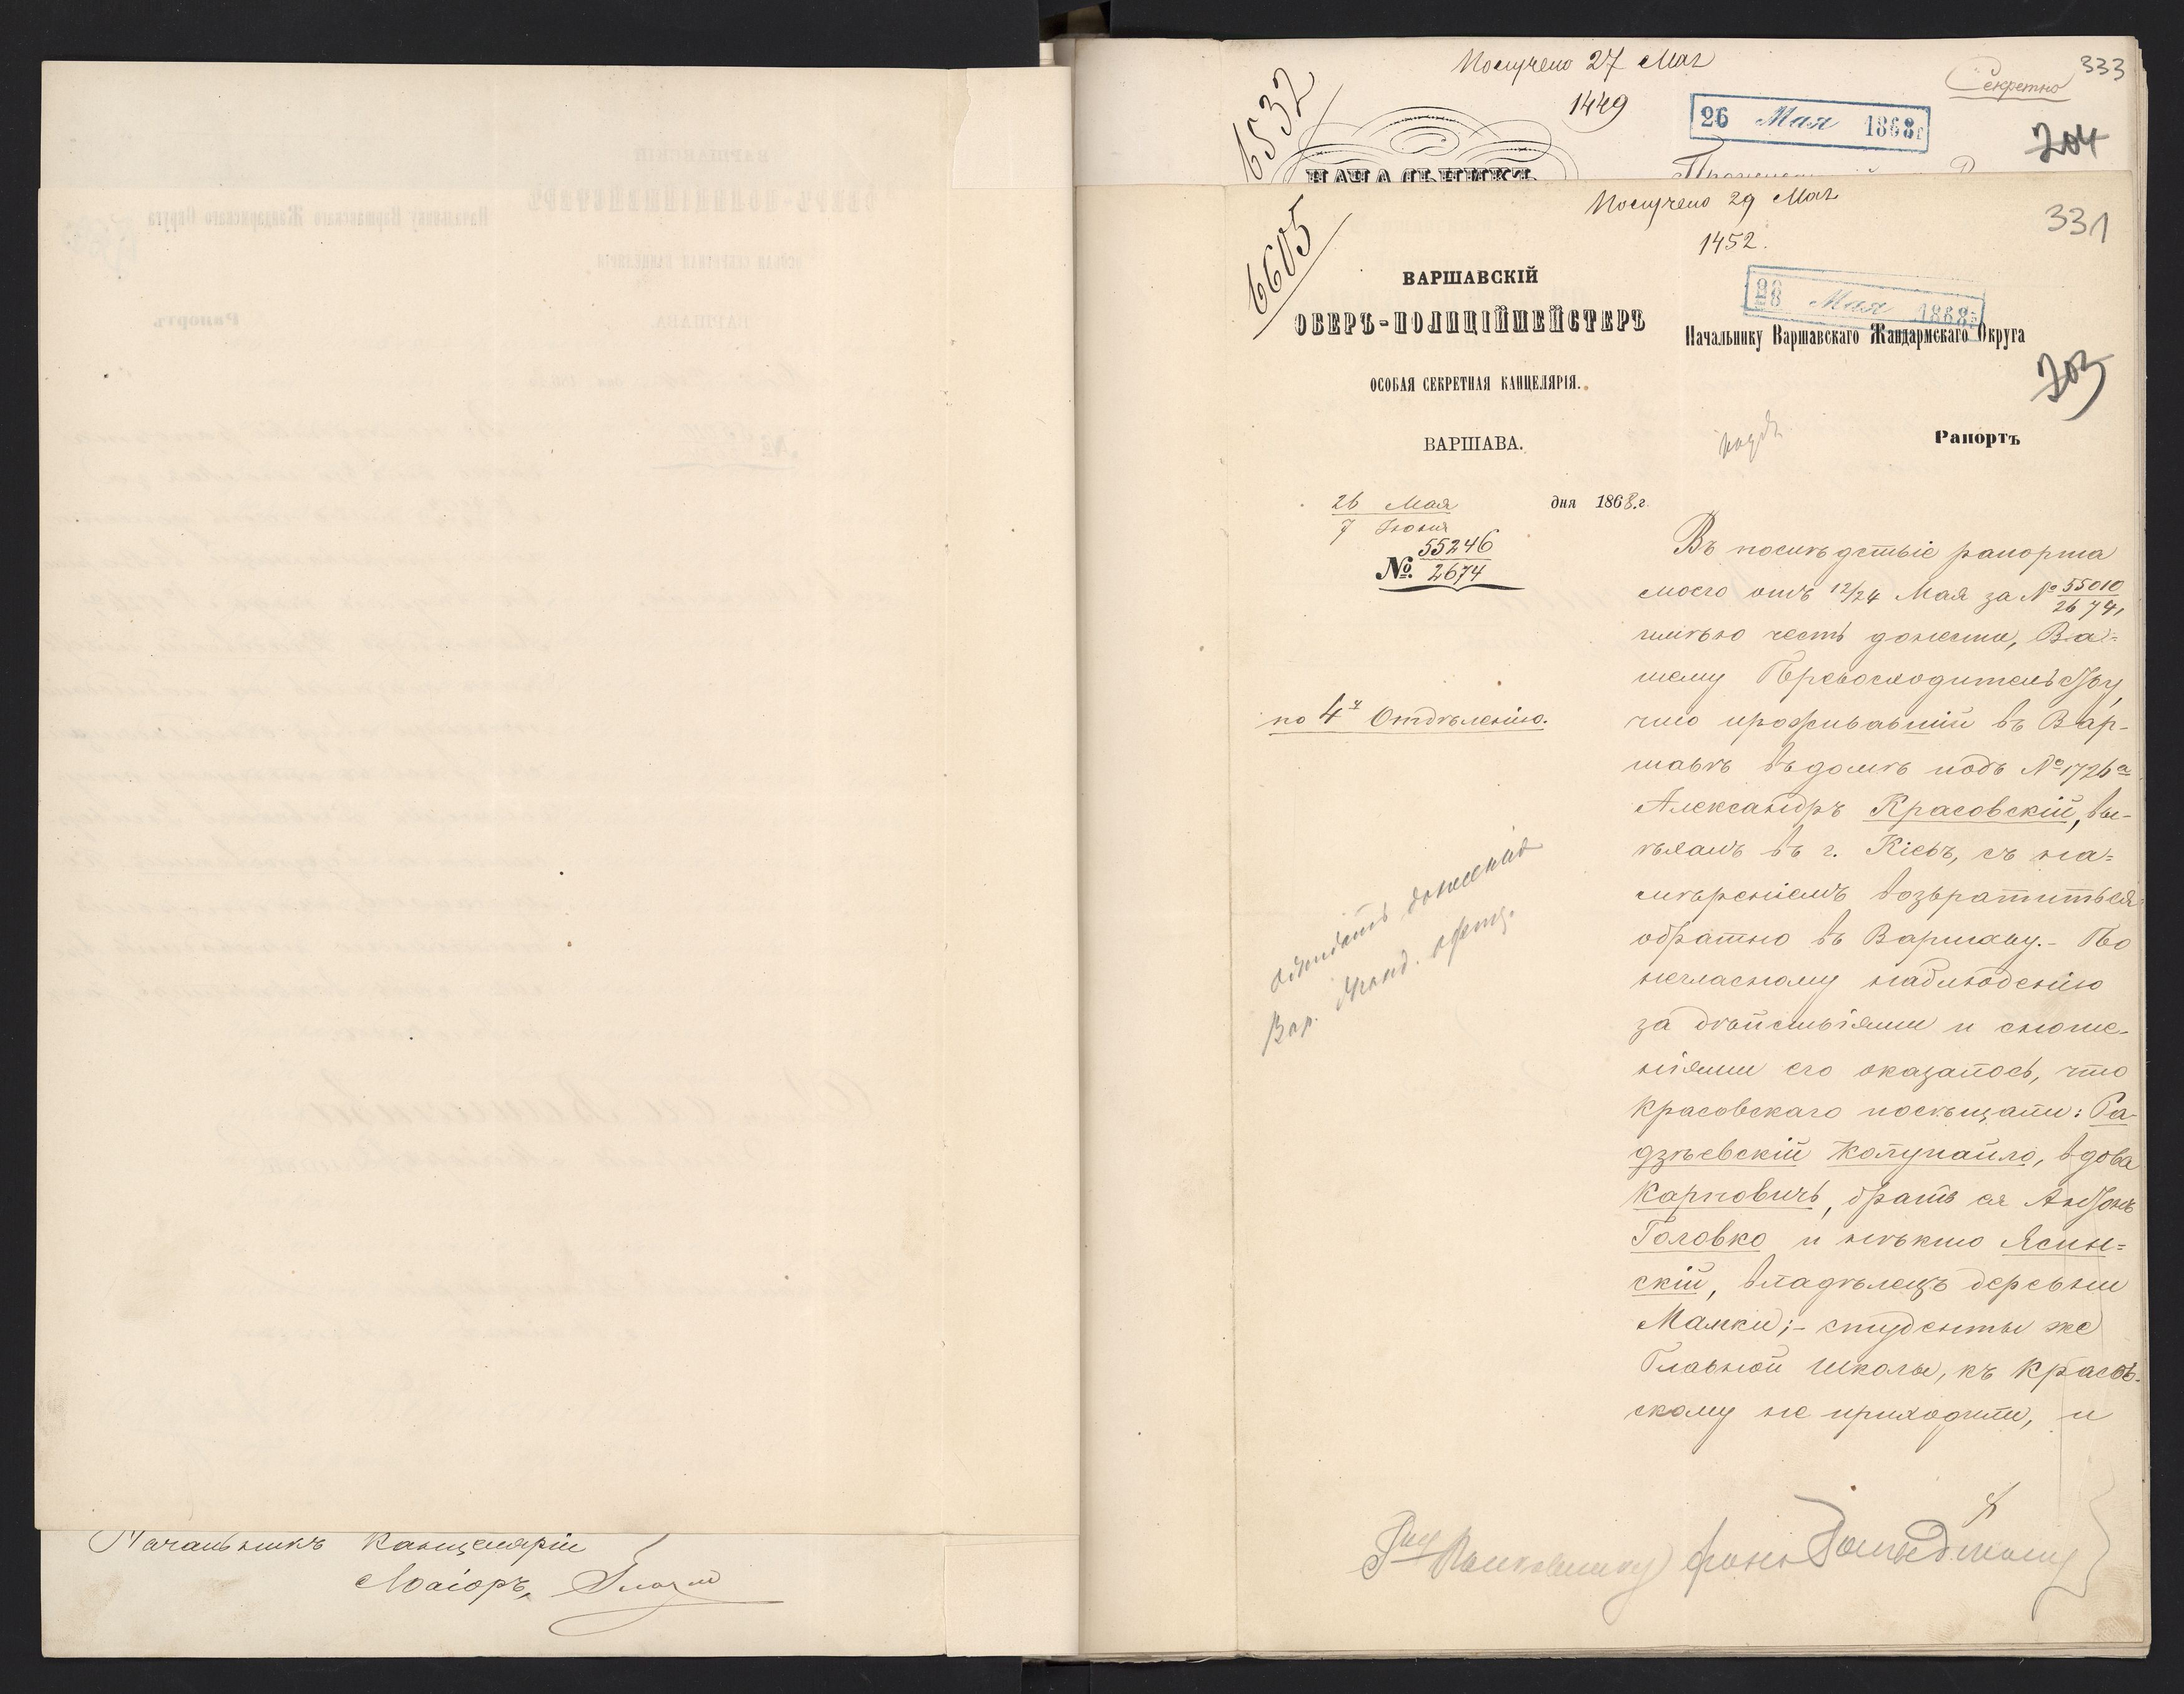 Начальникъ Канцеляріи
Маіоръ,
Получено 27 Мая
1449
6532
26 Мая 1868 г.
Секретно
333
204
НАЧАЛЬНИКЪ
Получено 29 Мая
1452.
6605
331
28 Мая 1868 г.
ВАРШАВСКІЙ
ОБЕРЪ-ПОЛИЦІЙМЕЙСТЕРЪ
ОСОБАЯ СЕКРЕТНАЯ КАНЦЕЛЯРІЯ.
ВАРШАВА.
26 Мая
7 Іюня
дня 1868 г.
№ 55246
2674
по 4у Отдѣленію.
Начальнику Варшавскаго Жандармскаго Округа
203
Рапортъ
Въ послѣдствіе рапорта
моего отъ 12/24 Мая за № 55010/2674,
имѣю честь донести, Ва=
шему Превосходительству,
что проживавшій въ Вар-
шавѣ въ домѣ подъ № 1726а
Александръ Красовскій, вы-
ѣхалъ въ г. Кіевъ, съ на=
мѣреніемъ возвратиться
обратно въ Варшаву.- По
негласному наблюденію
за дѣйствіями и сноше-
ніями его оказалось, что
Красовскаго посѣщали: Ра-
дзѣевскій Колупайло, вдова
Карповичъ, братъ ея Антонъ
Головко и нѣкто Ясин=
скій, владѣлецъ деревни
Мамки;- студенты же
Главной Школы, къ Красов-
скому не приходили, и
ожидать донесенія
Вар. Жанд.
Полковнику фонъ